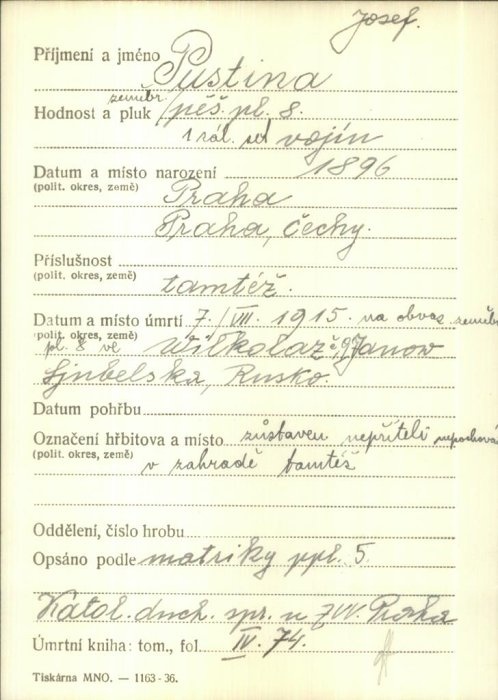 Josef.
Příjmení a jméno Pustina
zeměbr.
Hodnost a pluk pěš. pl. 8.
1 zál. set vojín
Datum a místo narození 1896
(polit. okres, země) Praha
Praha, Čechy.
Příslušnost
(polit. okres, země) tamtéž.
Datum a místo úmrtí 7./VII. 1915 na obvaz. zeměbr
(polit. okres, země)
pl. 8 ve Wilkolaz Janow
Ljubelska, Rusko.
Datum pohřbu
Označení hřbitova a místo zůstaven nepříteli nepochová
(polit. okres, země)
v zahradě tamtéž
Oddělení, číslo hrobu
Opsáno podle matriky ppl. 5.
Katol. duch. spr. u ZVV. Praha
Úmrtní kniha: tom., fol. IV. 74.
Tiskárna MNO. — 1163-36.